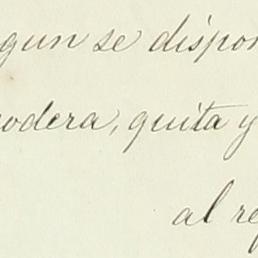 gun se dispon
odera, quita y
al re